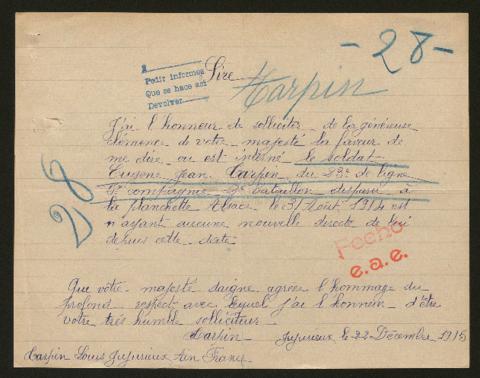 - 28 -
Pedir informes
Que se hace así
Devolver
Sire
Carpin
J'ai l'honneur de solliciter de la généreuse
clémence de votre majesté la faveur de
me dire ou est interné le soldat
Eugene Jean Carpin du 23e de ligne
compagnie bataillon disparu à
la planchette Alsace le 31 Aout 1914 est
n'ayant aucune nouvelle directe de lui
depuis cette date
28
Fecho
e.a.e.
Que vôtre majesté daigne agréer l'hommage du
profond respect avec lequel j'ai l'honneur d'être
votre très humble solliciteur
Carpin Jujurieux le 22 Décembre 1915
Carpin Louis Jujurieux Ain France